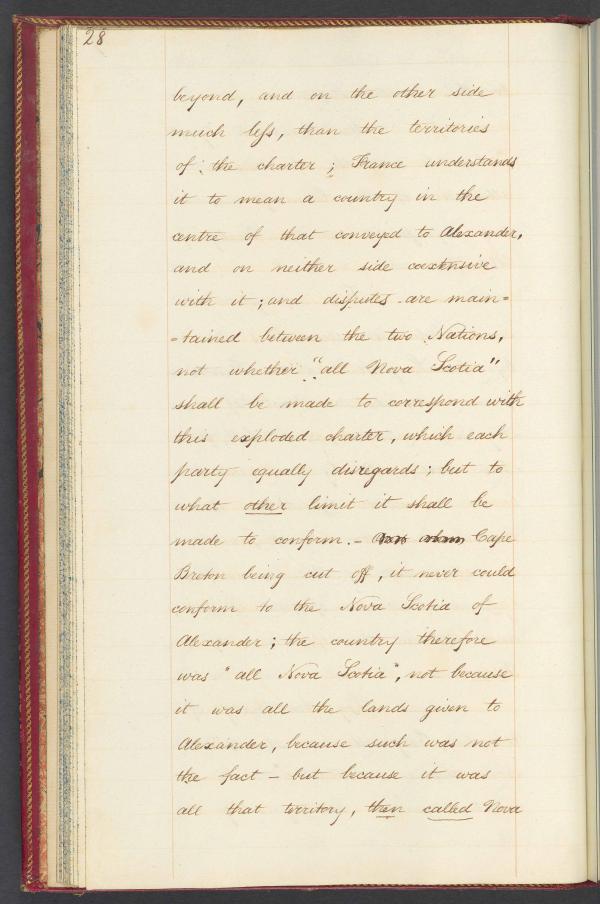 28
beyond, and on the other side
much less, than the territories
of the charter; France understands
it to mean a country in the
centre of that conveyed to Alexander,
and on neither side coextensive
with it; and disputes are main=
=tained between the two Nations,
not whether "all Nova Scotia"
shall be made to correspond with
this exploded charter, which each
party equally disregards; but to
what other limit it shall be
made to conform. – Cape
Breton being cut off, it never could
conform to the Nova Scotia of
Alexander; the country therefore
was "all Nova Scotia", not because
it was all the lands given to
Alexander, because such was not
the fact – but because it was
all that territory, then called Nova